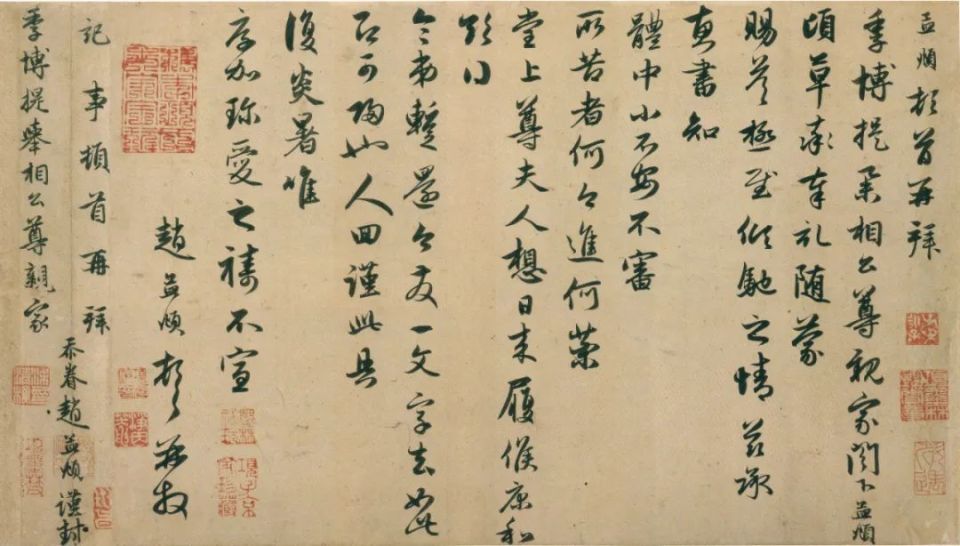 孟頫頓首再拜
季博提舉相公尊親家閣下孟頫
頃草率奉札随蒙
賜荅極慰傾馳之情茲承
惠書知
體中小不安不審
所苦者何今進何藥
堂上尊夫人想日来履候康和
令弟暫還今一文字去如此
可也人回謹此具
復炎暑唯
厚加珍愛之禱不宣
趙孟頫頓首再拜
記事頓首再拜
季博提舉相公尊親家
忝眷趙孟頫謹封